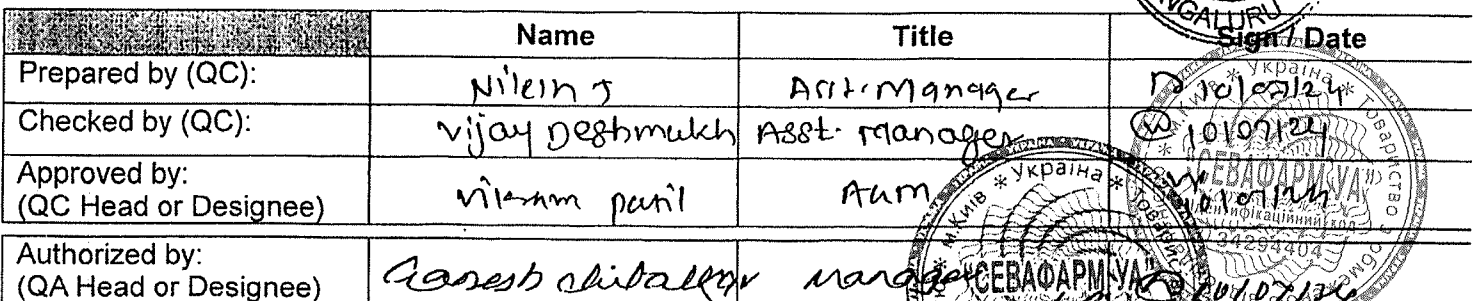 BENGALURU
Name Title Sign / Date
Prepared by (QC): Nilesh J Asst. Manager 10/07/24
Checked by (QC): Vijay Deshmukh Asst. Manager 10/07/24
Approved by:
(QC Head or Designee) Vikram Patil AGM 10/07/24
Authorized by:
(QA Head or Designee) Ganesh Manager 10/07/24
* м.Київ * Україна * Товариство з обме
"СЕВАФАРМ УА"
34294404
* м.Київ * Україна * Товарис
"СЕВАФАРМ УА"